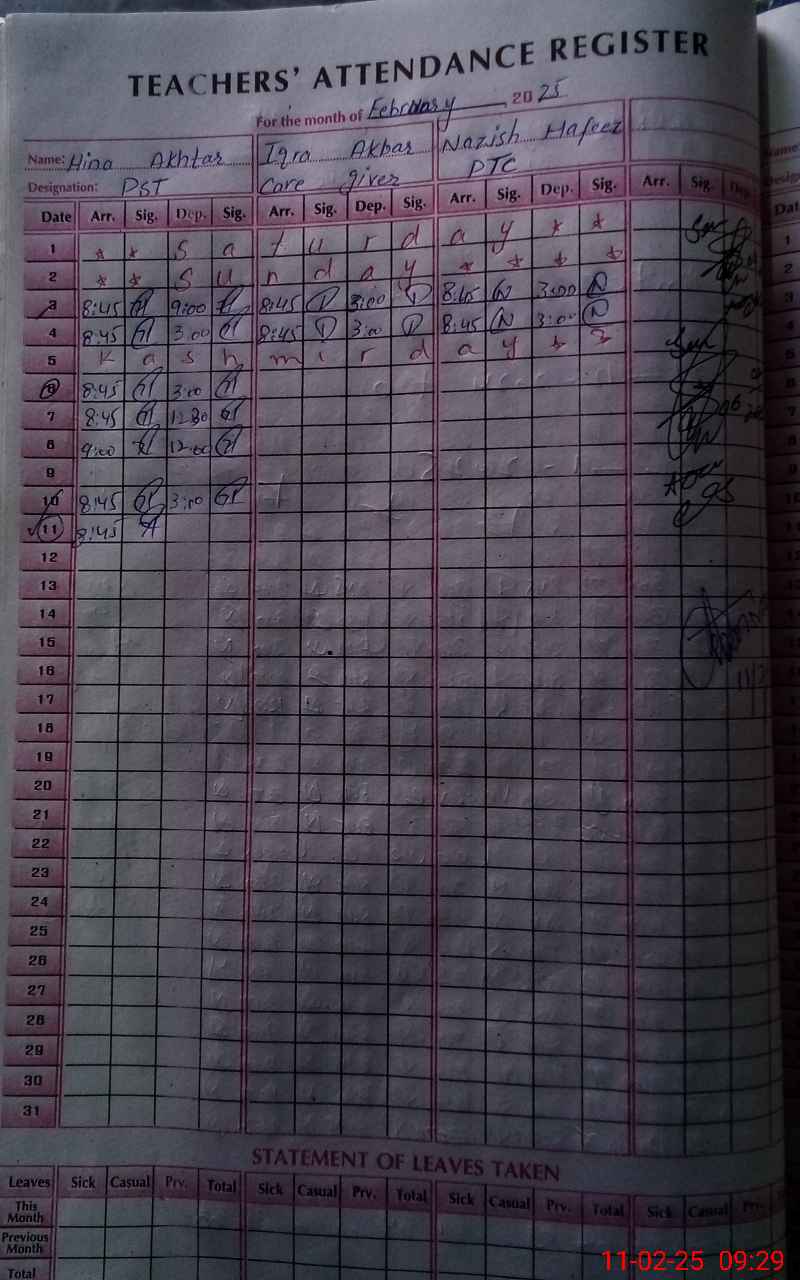 TEACHERS' ATTENDANCE REGISTER
For the month of February 2025
Name: Hina Akhtar Iqra Akbar Nazish Hafeez
Designation: PST Care giver PTC
Date Arr. Sig. Dep. Sig. Arr. Sig. Dep. Sig. Arr. Sig. Dep. Sig. Arr. Sig. Dep.
1 * * S a t u r d a y * *
2 * * S u n d a y * * * *
3 8:45 9:00 8:45 3:00 8:45 N 3:00 N
4 8:45 3:00 8:45 3:00 8:45 N 3:00 N
5 K a s h m i r d a y
6 8:45 3:00
7 8:45 12:30
8 9:00 12:00
9
10 8:45 3:00
11 8:45
12
13
14
15
16
17
18
19
20
21
22
23
24
25
26
27
28
29
30
31
STATEMENT OF LEAVES TAKEN
Leaves Sick Casual Prv. Total Sick Casual Prv. Total Sick Casual Prv. Total Sick Casual Prv.
This Month
Previous Month
Total
11-02-25 09:29